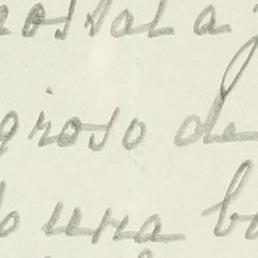 postal a
giroso de
o una bo